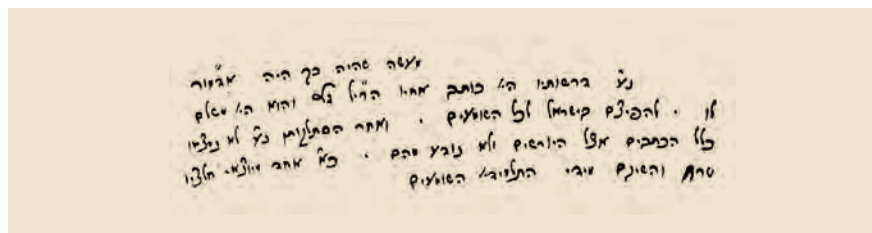 מעשה שהיה כך היה אאמו"ר
נ"ע ברשותיו הי' כותב מחיו הנ"ל והוא הי' משלם
לו . להפיצם בישראל לכל השומעים . ואחר הסתלקותו נ"ע לא נמצאו
כלל הכתבים אצל היורשים ולא נודע מהם . כ"א אחד מיוצאי חלציו
טרח והשיגם מידי התלמידי' השומעים